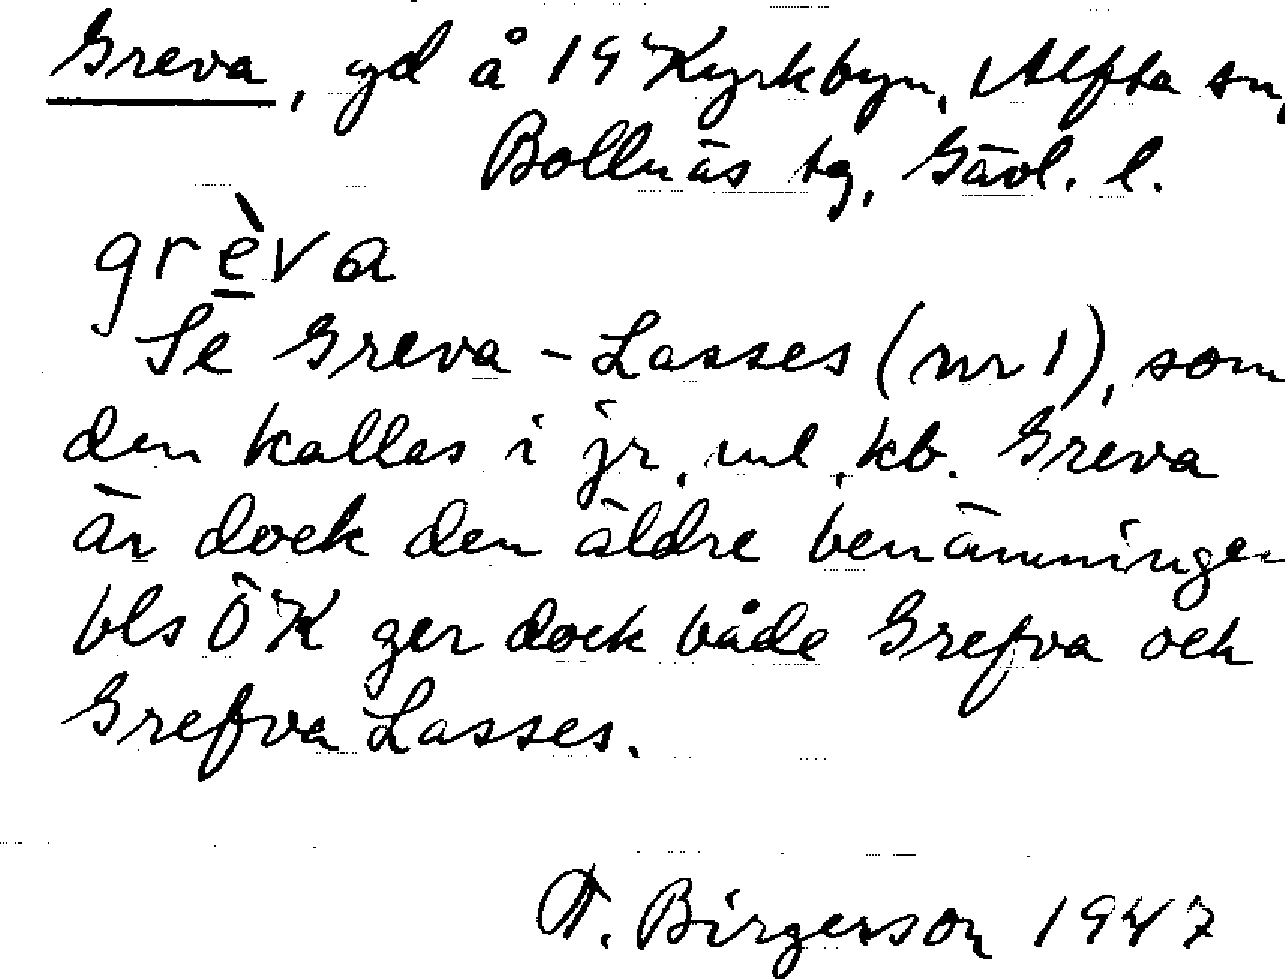 Greva, gd å 19 Kyrkbyn, Alfta sn,
Bollnäs tg, Gävl. l.
grèva
Se Greva-Lasses (nr 1), som
den kallas i jr, ml, kb. Greva
är dock den äldre benämningen
bls ÖK ger dock både Grefva och
Grefva Lasses.
F. Birgerson 1947